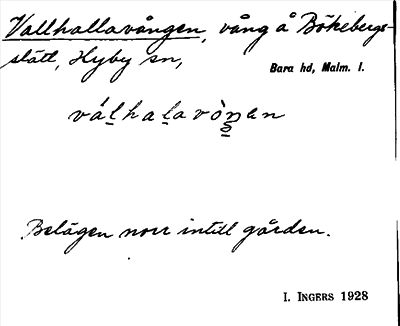 Vallhallavången, vång å Bökebergs-
slätt, Hyby sn,
Bara hd, Malm. l.
Belägen norr intill gården.
I. INGERS 1928